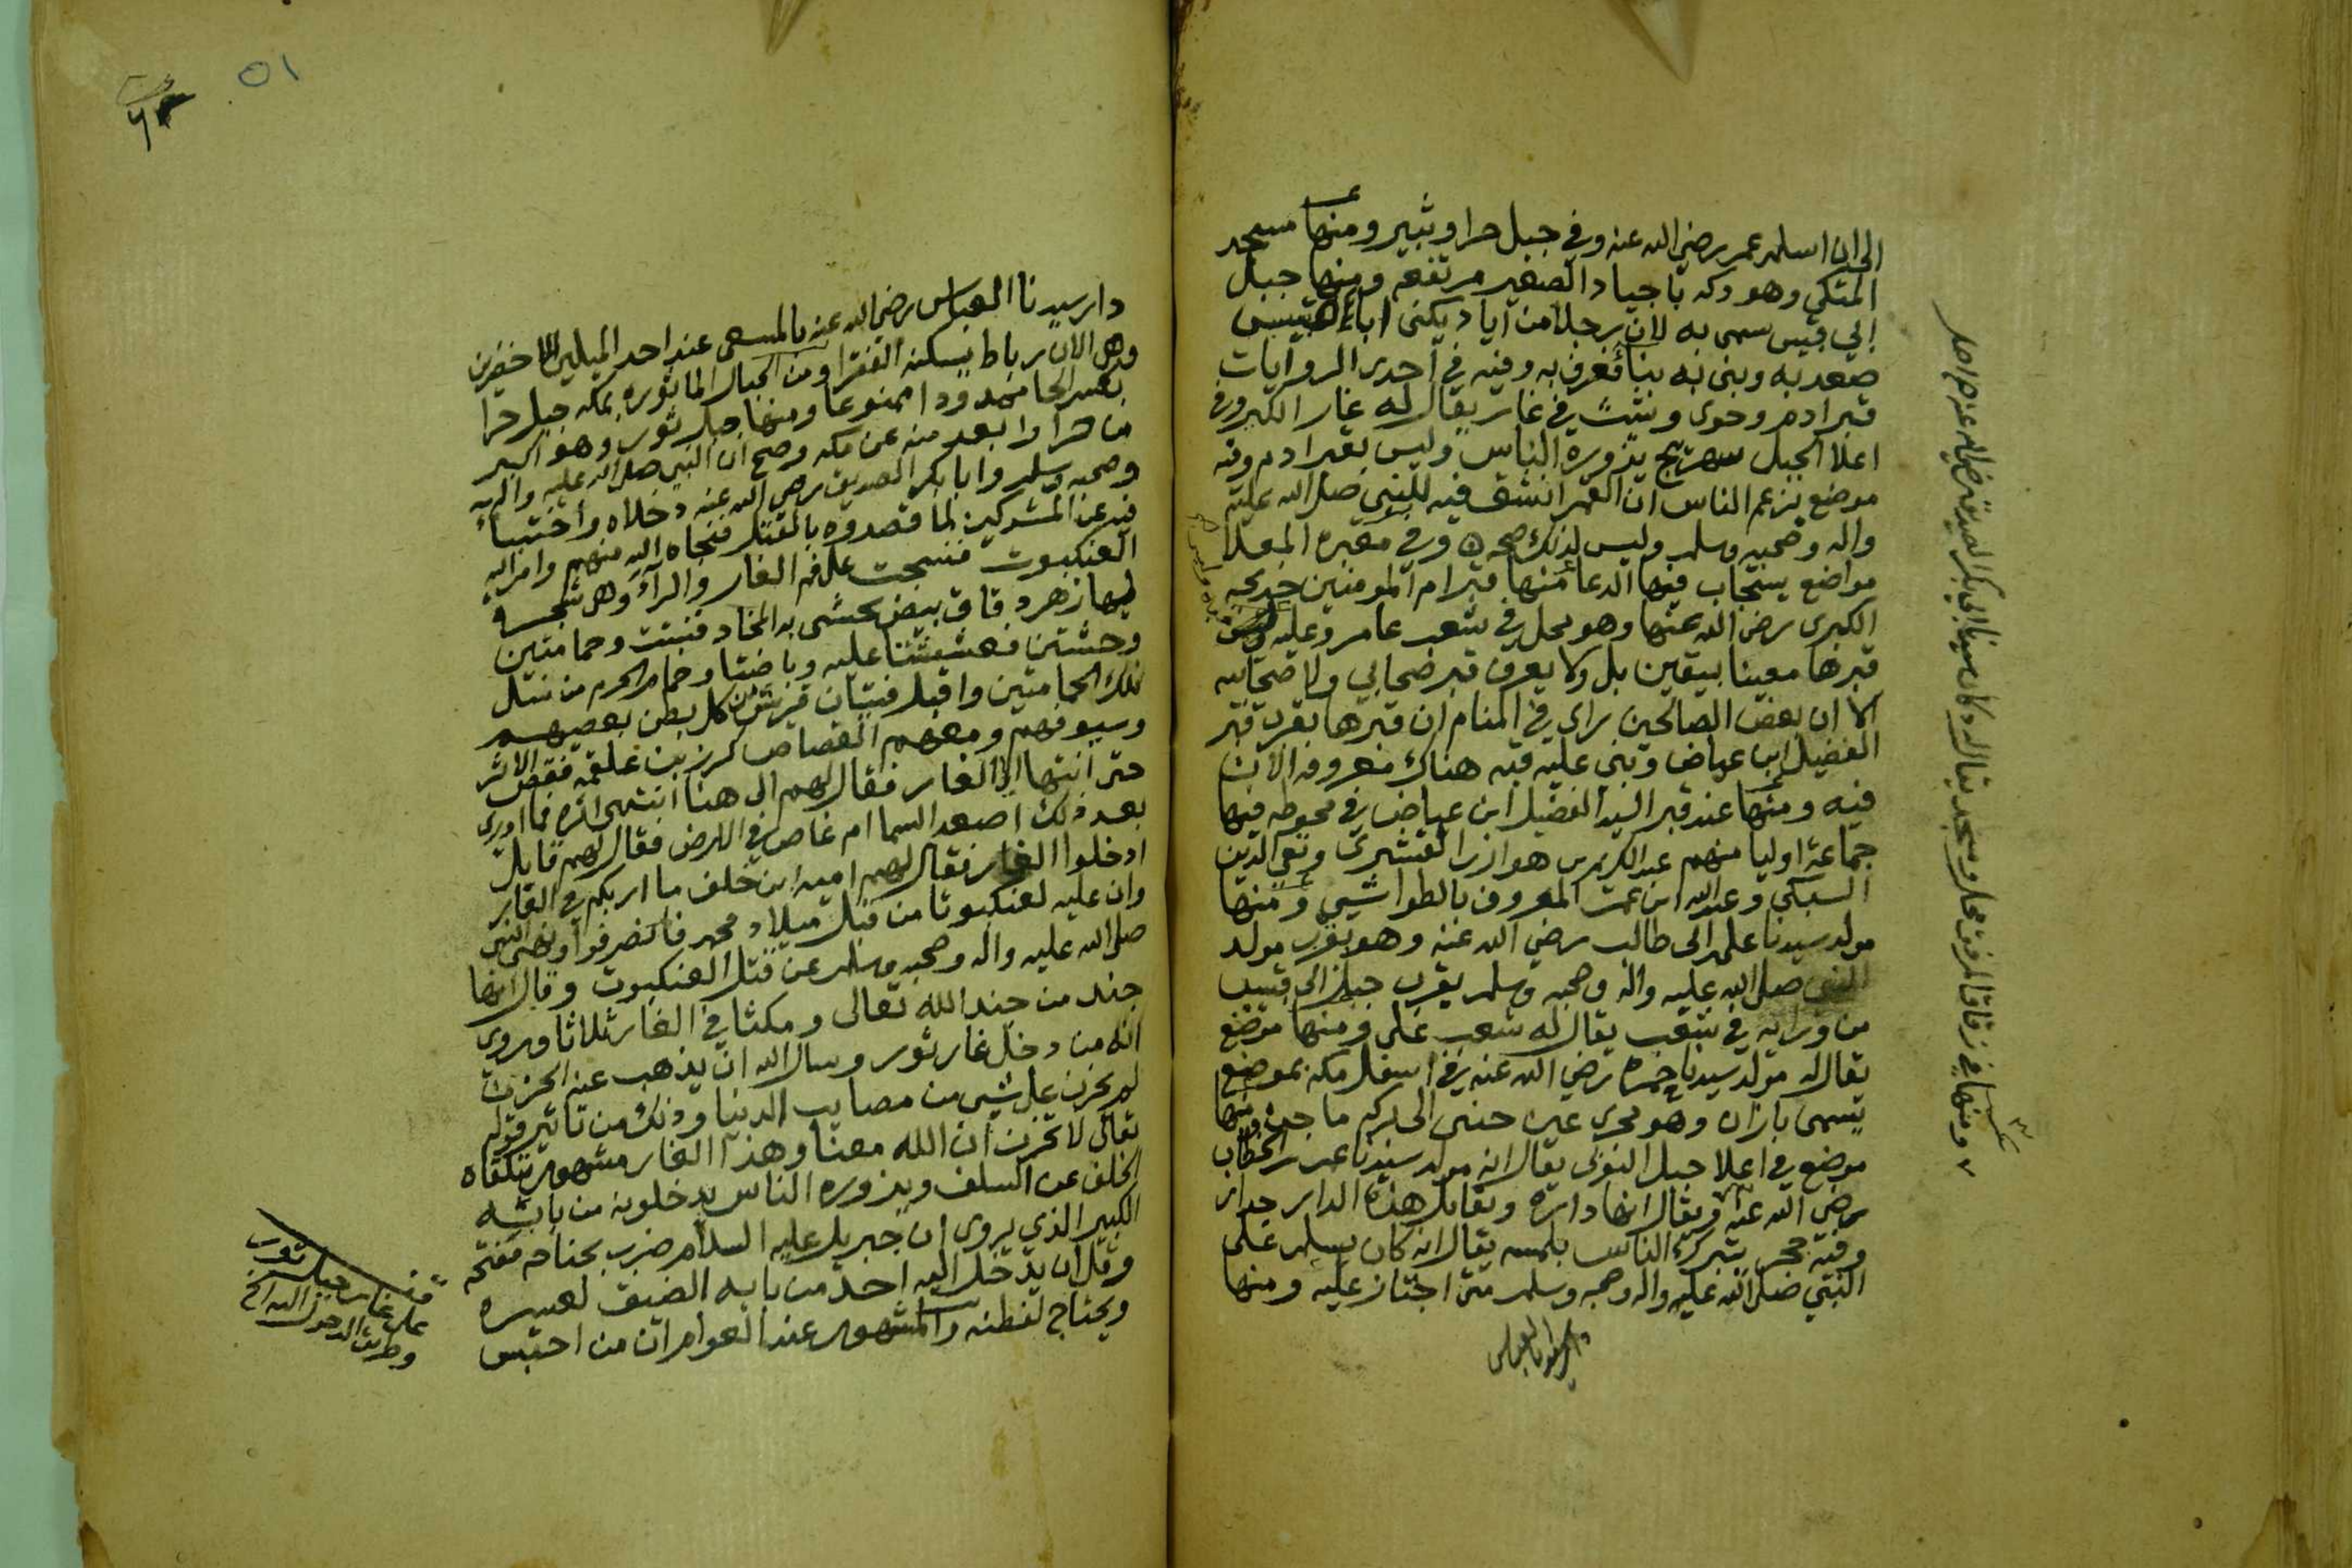 الى ان اسلم عمر رضي الله عنه وفي جبل حرا وثبير ومنها مسجد
المتكي وهو دكه باجياد الصغير مرتفعه ومنها جبل
ابي قبيس سمي به لان رجلا من اياد يكنى ابا قبيس
صعد به وبنى به بناء فعرف به وفيه في احدى الروايات
قبر ادم وحوى وشث في غار يقال له غار الكبر وفي
اعلا الجبل صهريج يزوره الناس وليس بقبر ادم وفيه
موضع يزعم الناس ان القمر انشق فيه للنبي صلى الله عليه
واله وصحبه وسلم وليس لذلك صحه وفي مقبره المعلا
مواضع يستجاب فيها الدعا منها قبر ام المومنين خديجه
الكبرى رضي الله عنها وهو بمحل في شعب عامر وعليه
قبرها معينا بيقين بل ولا يعرف قبر صحابي ولا صحابيه
الا ان بعض الصالحين راى في المنام ان قبرها بقرب قبر
الفضيل ابن عياض وبني عليه قبه هناك معروفه الان
فيه ومنها عند قبر السيد الفضيل ابن عياض في محوطه فيها
جماعة اوليا منهم عبد الكريم بن هوازن القشيري وتقي الدين
السبكي وعبد الله ابن عمر المعروف بالطواشي ومنها
مولد سيدنا علي ابي طالب رضي الله عنه وهو بقرب مولد
النبي صلى الله عليه واله وصحبه وسلم بقرب جبل ابي قبيس
من ورايه في شعب يقال له شعب علي ومنها موضع
يقال له مولد سيدنا حمزه رضي الله عنه في اسفل مكه بموضع
يسمى بازان وهو مجرى عين حنين الى بركه ماجن ومنها
موضع في اعلا جبل النوبي يقال انه مولد سيدنا عمر الخطاب
رضي الله عنه ويقال انها داره ويقابل هذه الدار جدار
وفيه حجر يتبرك الناس بلمسه يقال انه كان يسلم على
النبي صلى الله عليه واله وصحبه وسلم متى اجتاز عليه ومنها
ومنها في زقاق المرفق محل ومسجد يقال له دكان سيدنا ابي بكر الصديق رضي الله عنه
٥١
دار سيدنا العباس رضي الله عنه بالمسعى عند احد الميلين الاخضرين
وهي الان رباط يسكنه الفقرا ومن الجبال الماثوره بمكه جبل حرا
بكسر الحا ممدودا ممنوعا ومنها جبل ثور وهو اكبر
من حرا وابعد منه عن مكه وصح ان النبي صلى الله عليه واله
وصحبه وسلم وابا بكر الصديق رضي الله عنه دخلاه واختبأ
فيه عن المشركين لما قصدوه بالقتل فنجاه الله منهم وامر الله
العنكبوت فنسجت على فم الغار والرآءَ وهي شجره
لها زهر دقاق بيض يحشى به المخاد فنبتت وحمامتين
وحشتين فعششتا عليه وباضتا وحمام الحرم من نسل
تلك الحمامتين واقبل فتيان قريش من كل بطن بعصيهم
وسيوفهم ومعهم القصاص كرز بن علقمه فقص الاثر
حتى انتهى الى الغار فقال لهم الى هنا انتهى اثره فما ادري
بعد ذلك اصعد السما ام غاص في الارض فقال لهم قايل
ادخلوا الغار فقال لهم اميه ابن خلف ما اربكم في الغار
وان عليه لعنكبوتا من قبل ميلاد محمد فانصرفوا ونهى النبي
صلى الله عليه واله وصحبه وسلم عن قتل العنكبوت وقال انها
جند من جند الله تعالى ومكثا في الغار ثلاثا ويروى
انه من دخل غار ثور وسال الله ان يذهب عنه الحزن
لم يحزن على شيي من مصايب الدنيا وذلك من تاثير قوله
تعالى لا تحزن ان الله معنا وهذا الغار مشهور يتلقاه
الخلف عن السلف ويزوره الناس يدخلونه من بابه
الكبير الذي يروى ان جبريل عليه السلام ضرب بجناحه ففتحه
وقل ان يدخل اليه احد من بابه الضيق لعسره
ويحتاج لفطنه والمشهور عند العوام ان من احتبس
على غار جبل ثور
وطريق الدخول اليه الخ